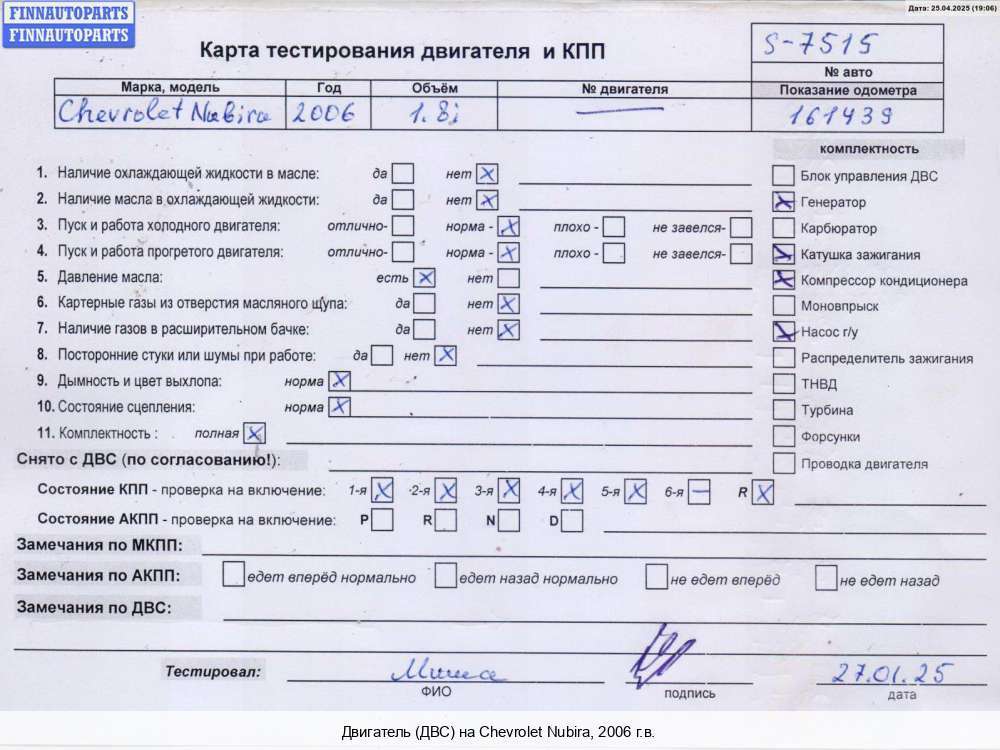 FINNAUTOPARTS
FINNAUTOPARTS
Дата: 25.04.2025 (19:06)
Карта тестирования двигателя и КПП
S-7515
№ авто
Марка, модель Год Объём № двигателя Показание одометра
Chevrolet Nubira 2006 1.8i — 161439
комплектность
1. Наличие охлаждающей жидкости в масле: да нет X
Блок управления ДВС
2. Наличие масла в охлаждающей жидкости: да нет X
X Генератор
3. Пуск и работа холодного двигателя: отлично- норма - X плохо - не завелся-
Карбюратор
4. Пуск и работа прогретого двигателя: отлично- норма - X плохо - не завелся-
X Катушка зажигания
5. Давление масла: есть X нет
X Компрессор кондиционера
6. Картерные газы из отверстия масляного щупа: да нет X
Моновпрыск
7. Наличие газов в расширительном бачке: да нет X
X Насос г/у
8. Посторонние стуки или шумы при работе: да нет X
Распределитель зажигания
9. Дымность и цвет выхлопа: норма X
ТНВД
10. Состояние сцепления: норма X
Турбина
11. Комплектность : полная X
Форсунки
Снято с ДВС (по согласованию!):
Проводка двигателя
Состояние КПП - проверка на включение: 1-я X 2-я X 3-я X 4-я X 5-я X 6-я — R X
Состояние АКПП - проверка на включение: P R N D
Замечания по МКПП:
Замечания по АКПП: едет вперёд нормально едет назад нормально не едет вперёд не едет назад
Замечания по ДВС:
Тестировал: Миша 27.01.25
ФИО подпись дата
Двигатель (ДВС) на Chevrolet Nubira, 2006 г.в.